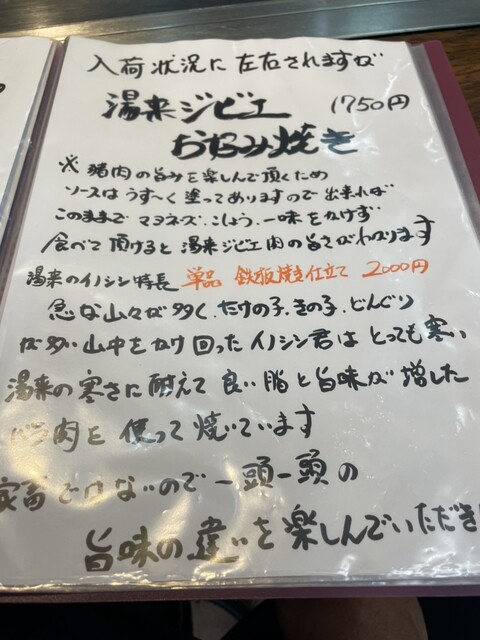 入荷状況に左右されますが
湯来ジビエ 1750円
お好み焼き
※ 猪肉の旨みを楽しんで頂くため
ソースはうす〜く塗ってありますので出来れば
このままでマヨネーズ、こしょう、一味をかけず
食べて頂けると湯来ジビエ肉の旨さがわかります
湯来のイノシシ特長 単品 鉄板焼き仕立て 2000円
急な山々が多く、たけの子、きの子、どんぐり
が多い山中をかけ回ったイノシシ君はとっても寒い
湯来の寒さに耐えて良い脂と旨味が増した
肉を使って焼いています
家畜ではないので一頭一頭の
旨味の違いを楽しんでいただき